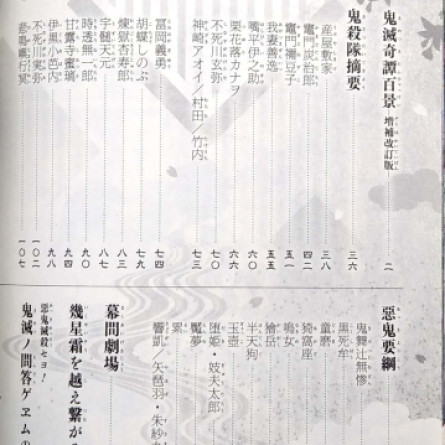 鬼滅奇譚百景 増補改訂版 二
鬼殺隊摘要 三六
産屋敷家 三八
竈門炭治郎 四二
竈門禰豆子 五一
我妻善逸 五五
嘴平伊之助 六〇
栗花落カナヲ 六六
不死川玄弥 七〇
神崎アオイ/村田/竹内 七三
冨岡義勇 七四
胡蝶しのぶ 七九
煉獄杏寿郎 八三
宇髄天元 八七
時透無一郎 九〇
甘露寺蜜璃 九四
伊黒小芭内 九八
不死川実弥 一〇二
悲鳴嶼行冥 一〇七
惡鬼要綱
鬼舞辻無惨
黒死牟
童磨
猗窩座
鳴女
獪岳
半天狗
玉壺
堕姫・妓夫太郎
魘夢
累
響凱/矢琶羽・朱紗丸
幕間劇場
幾星霜を越え繋がる
惡鬼滅殺セヨ!
鬼滅ノ問答ゲヱムの